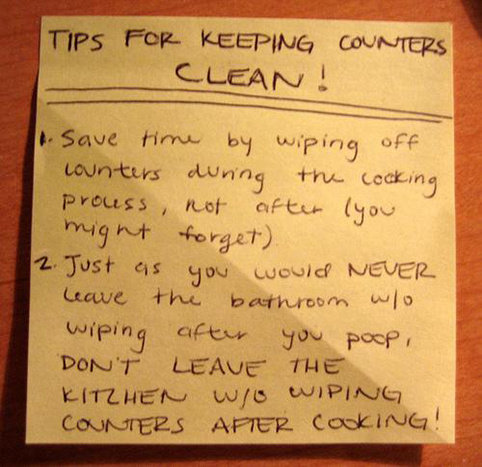 TIPS FOR KEEPING COUNTERS
CLEAN!
1. Save time by wiping off
counters during the cooking
process, not after (you
might forget).
2. Just as you would NEVER
leave the bathroom w/o
wiping after you poop,
DON'T LEAVE THE
KITCHEN W/O WIPING
COUNTERS AFTER COOKING!